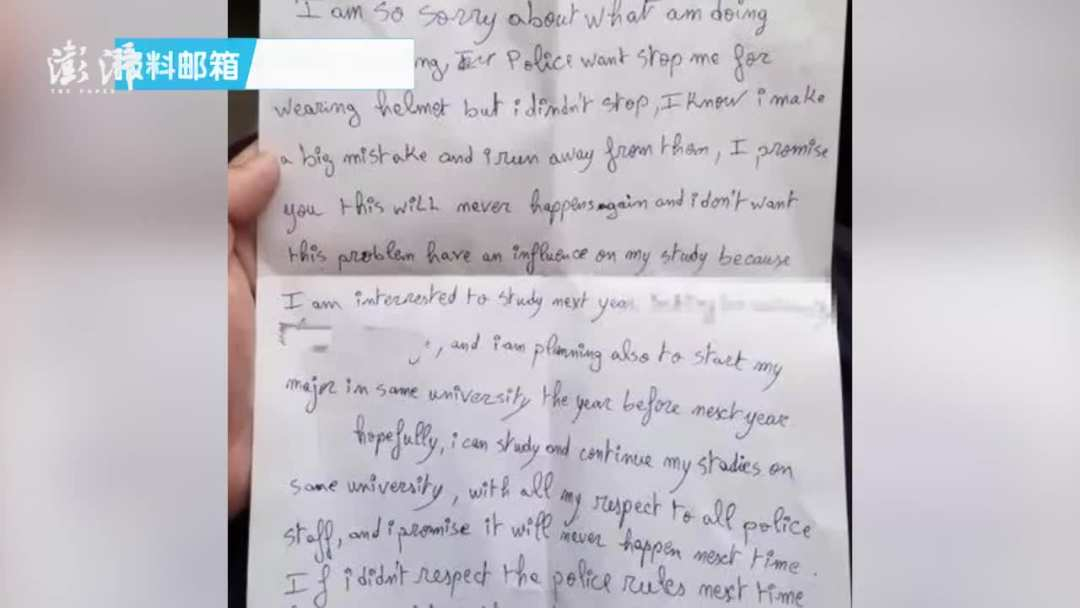 I am so sorry about what am doing
澎湃 报料邮箱
THE PAPER
Police want stop me for
wearing helmet but i dindn't stop, I know i make
a big mistake and i run away from them, I promise
you this will never happens again and i don't want
this problem have an influence on my study because
I am interrested to study next year
, and i am planning also to start my
major in same university the year before next year
hopefully, i can study and continue my studies on
same university, with all my respect to all police
staff, and i promise it will never happen next time.
If i didn't respect the police rules next time